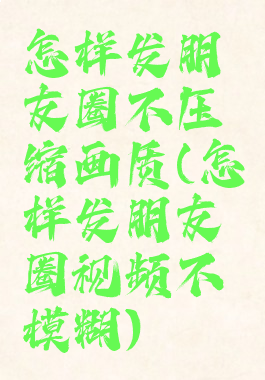 怎样发朋
友圈不压
缩画质(怎
样发朋友
圈视频不
模糊)